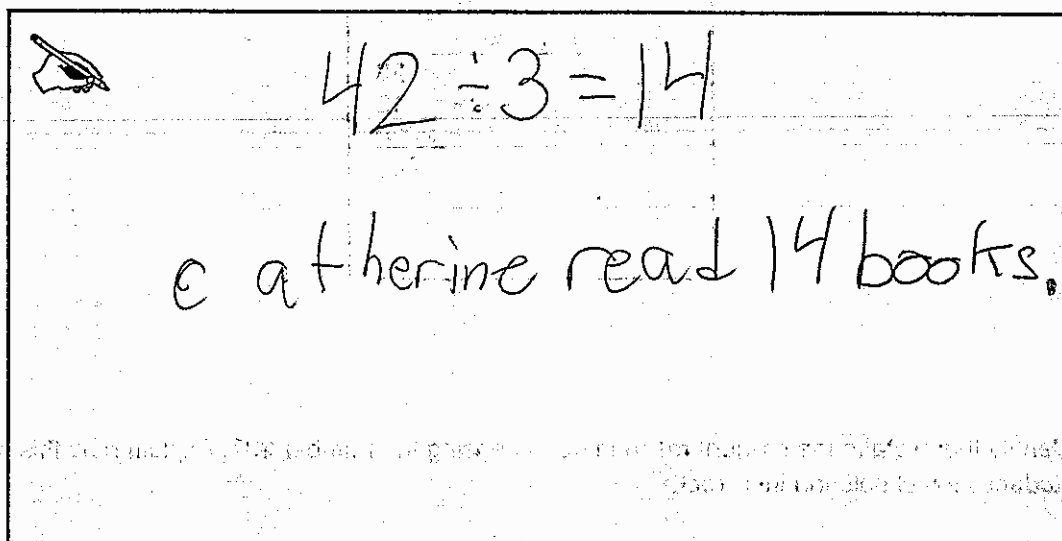 42÷3=14
catherine read 14 books.